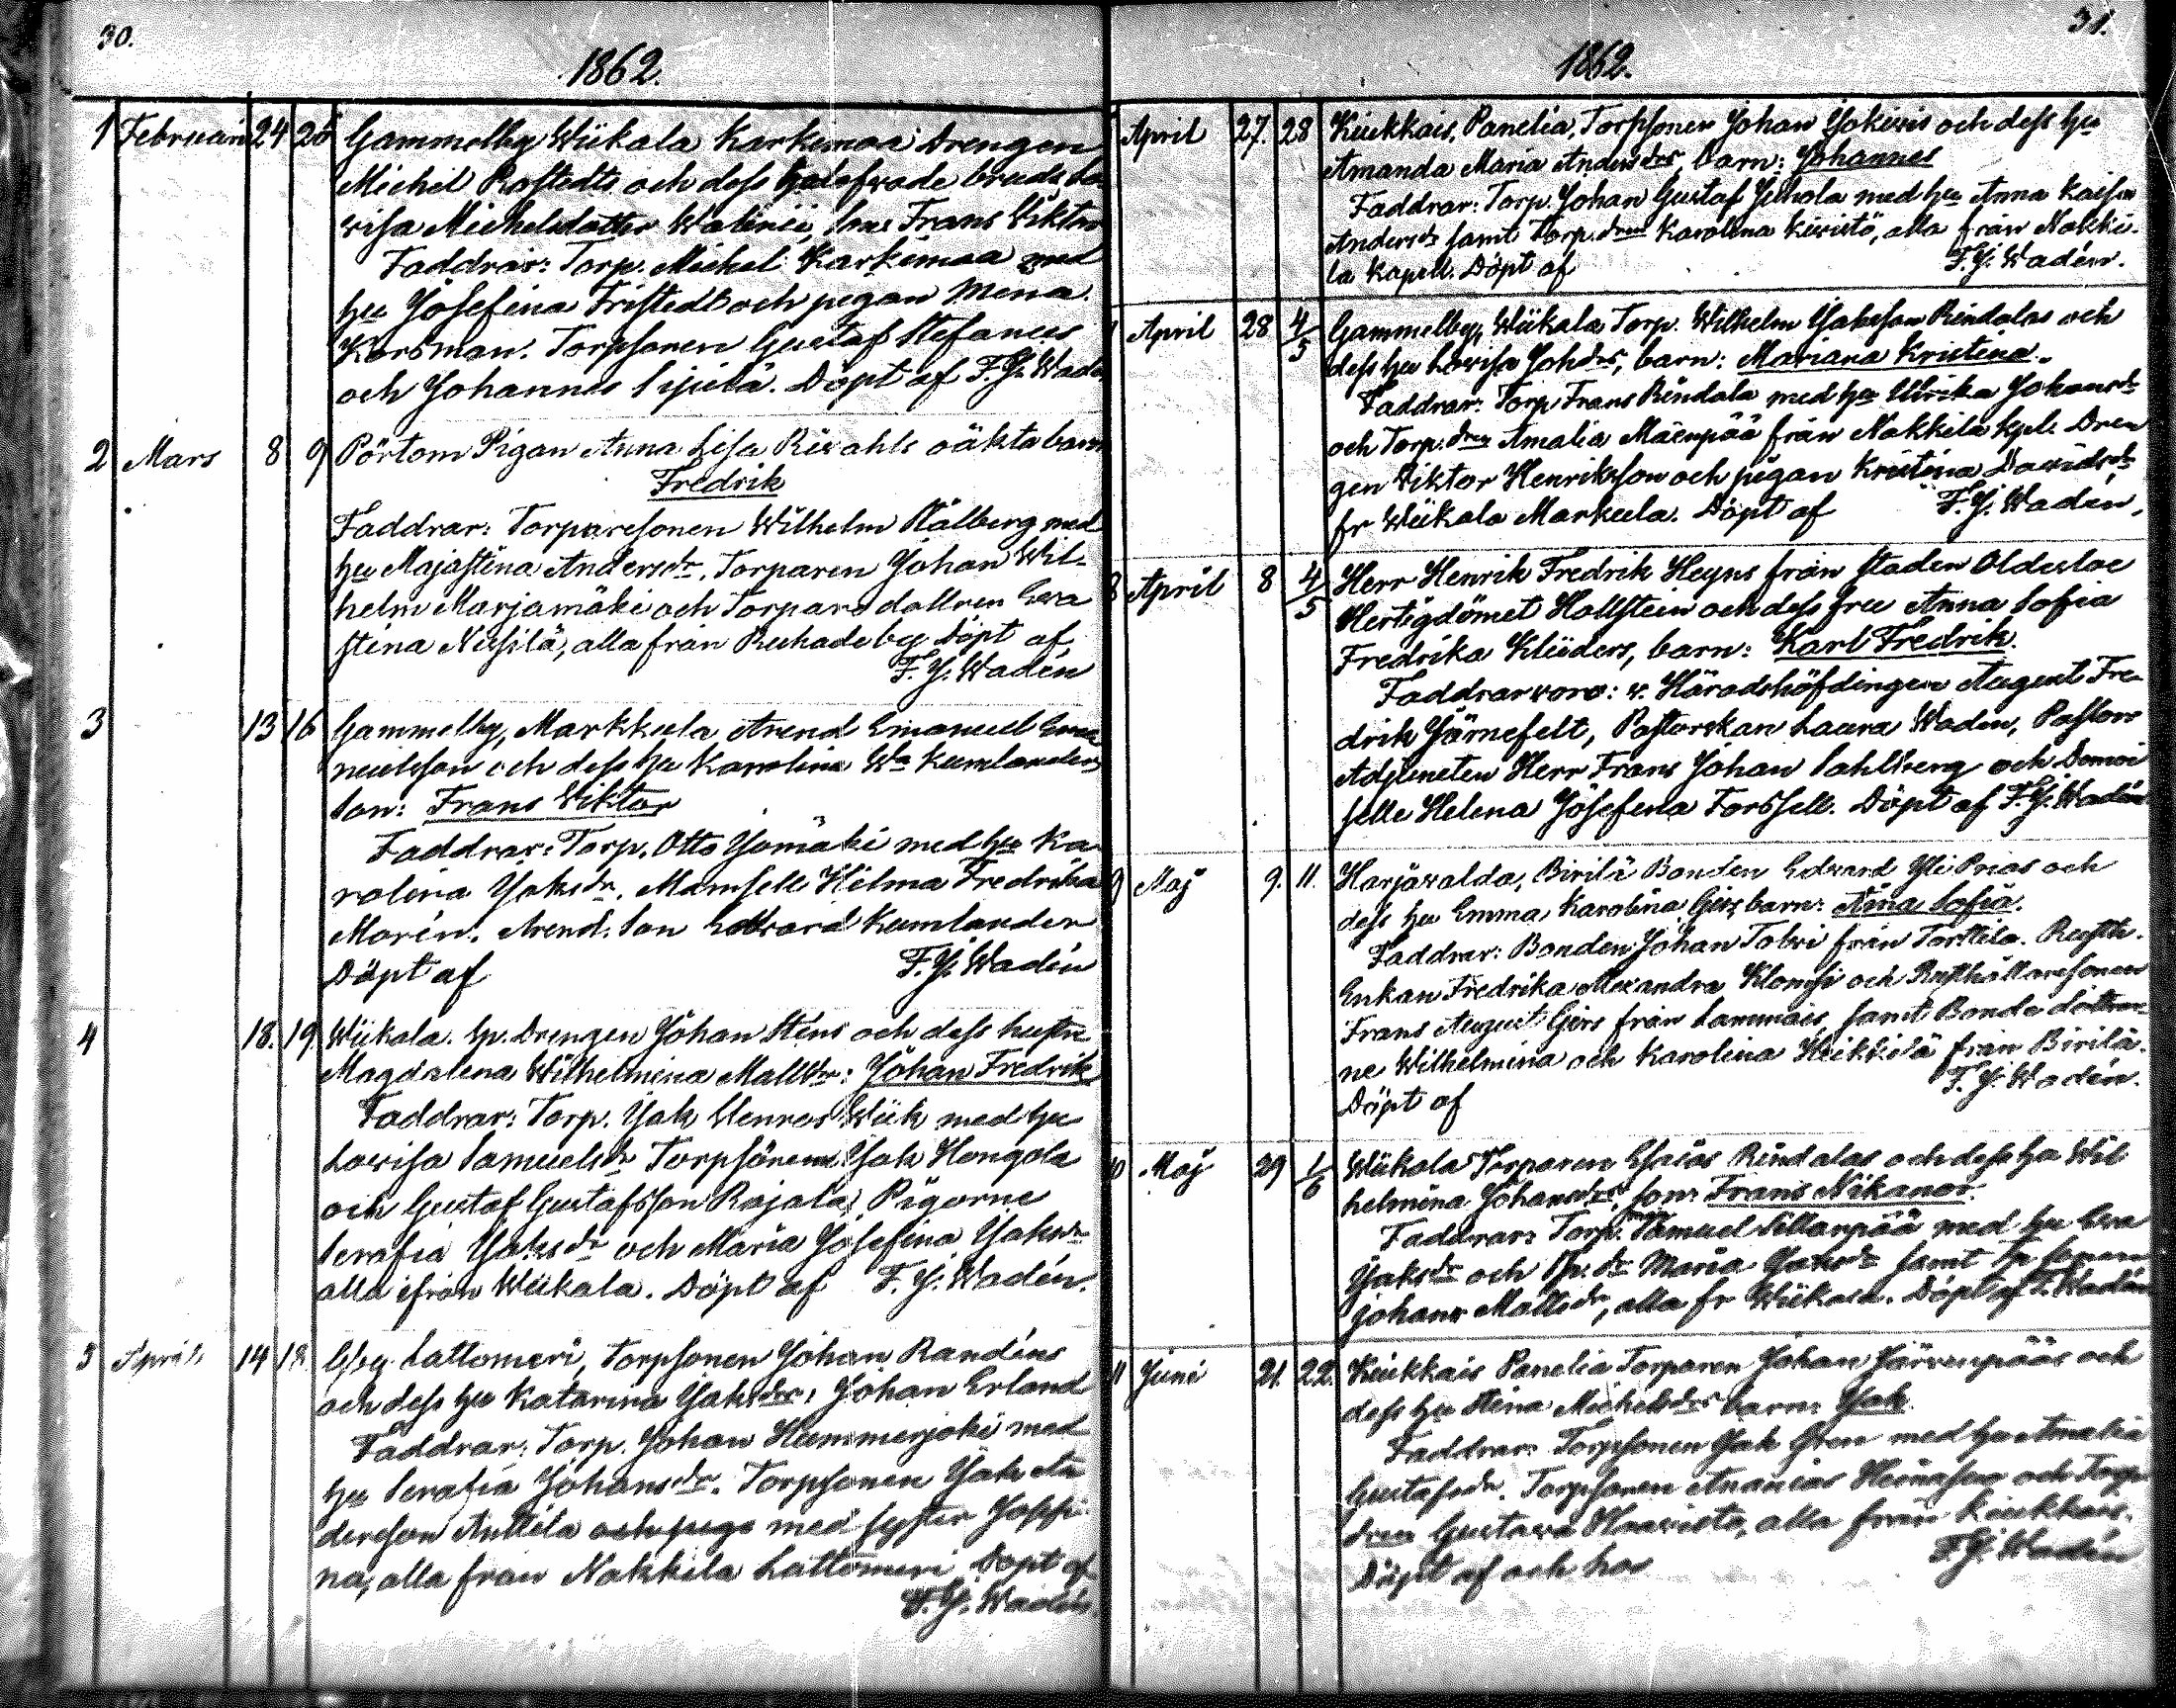 30.
1862.
1 Februari 24 25 Gammelby Wiikala Karkemaa Drengen
Michel Rostedts och dess trolofwade bruds Lo
wisa Michelsdotter Son: Frans Wiktor
Faddrar: Torp. Michel Karkimaa med
hu Josefina Fristedt och pigan Mina
Korsman. Torpsonen Gustaf Stefanus
och Johannes Sipilä. Döpt af F. J. Wadén
2 Mars 8 9 Pörtom Pigan Anna Lisa oäkta barn
Fredrik
Faddrar: Torparesonen Wilhelm Stålberg med
hu Majastina Andersdr. Torparen Johan Wil-
helm Marjamäki och Torparedottren Ewa
stina alla från Ruhade by Döpt af
F. J. Wadén
3 13 16 Gammelby, Markkula Arend. Emanuel Ema
nuelsson och dess hu Karolina Wa Kumlanders
Son: Frans Wiktor
Faddrar: Torp. Otto Jomäki med hu Ka-
rolina Jaksdr. Mamsell Hilma Fredrika
Morén. Arend. Son Edward Kumlander
Döpt af F. J. Wadén
4 18. 19. Wiikala. by. Drengen Johan Stens och dess hustru
Magdalena Wilhelmina Mattsdr: Johan Fredrik
Faddrar: Torp. Jak Wiik med hu
Lowisa Samuelsdr Torpsönerne Jak Hongola
och Gustaf Gustafsson Rajala, Pigorne
Serafia Jaksdr och Maria Josefina Jaksdr
alla ifrån Wiikala. Döpt af F. J. Wadén.
5 April 14 18. Gby Lattomeri, Torpsonen Johan Randéns
och dess hu Katarina Jaksdrs, Johan Erland
Faddrar: Torp. Johan Hammerjoki med
hu Serafia Johansdr. Torpsonen Jak An
dersson Anttila med syster Josefi
na, alla från Nakkila Lattomeri Döpt af
F. J. Wadén
31.
1862.
April 27. 28 Kiukkais, Panelia, Torpsonen Johan Jokiwis och dess hu
Amanda Maria Andersdrs, barn: Johannes
Faddrar: Torp. Johan Gustaf med hu Anna Kaisa
Andersdr samt Torp. dren Karolina Kiwistö, alla från Nakki-
la Kapell. Döpt af F. J. Wadén.
April 28 4/5 Gammelby, Wiikala, Torp. Wilhelm Jaksson Rindalas och
dess hu Lowisa Johdrs, barn: Mariana Kristina.
Faddrar: Torp Frans Rindala med hu Ulrika Johansdr
och Torp. dren Amalia Mäenpää från Nakkila kpl. Dren
gen Viktor Henriksson och pigan Kristina Dawidsdr
fr Wiikala Markula. Döpt af F. J. Wadén,
8 April 8 4/5 Herr Henrik Fredrik Heyns från staden Oldesloe
Hertigdömet Hollstein och dess fru Anna Sofia
Fredrika Klüders, barn: Karl Fredrik.
Faddrar woro: v. Häradshöfdingen August Fre-
drik Järnefelt, Pastorskan Laura Waden, Pastors
Adjuncten Herr Frans Johan Sahlberg och Damoi
selle Helena Josefina Forssell. Döpt af F. J. Wadén
9 Maj 9. 11. Harjawalda, Birilä Bonden Edvard Yli Prias och
dess hu Emma Karolina Girs, barn: Aina Sofia.
Faddrar: Bonden Johan Tolwi från Torttila. Rusth.
Enkan Fredrika Alexandra Klomsi och Rusthållaresonen
Frans August Girs från Lammais, samt Bonde döttrar-
ne Wilhelmina och Karolina Heikkilä från Birilä.
Döpt af F. J. Wadén.
10 Maj 29 1/6 Wiikala Torparen Esaias Rindalas och dess hu Wil
helmina Johansdrs, son: Frans Nikanor.
Faddrar: Torp. Samuel Sillanpää med hu Ewa
Jaksdr och Tp. dr Maria Jaksdr samt Tp sonen
Johan Mattsdr, alla fr Wiikala. Döpt af F. Wadén
11 Juni 21. 22. Kiukkais Panelia Torparen Johan Järwenpääs och
dess hu Stina Michelsdrs barn: Jak.
Faddrar: Torpsonen Jak Gren med hu Amalia
Gustafsdr. Torpsonen Ananias Heinäsuo och Torp
dren Gustawa Haawisto, alla från Kiukkais.
Döpt af och hos F. J. Wadén